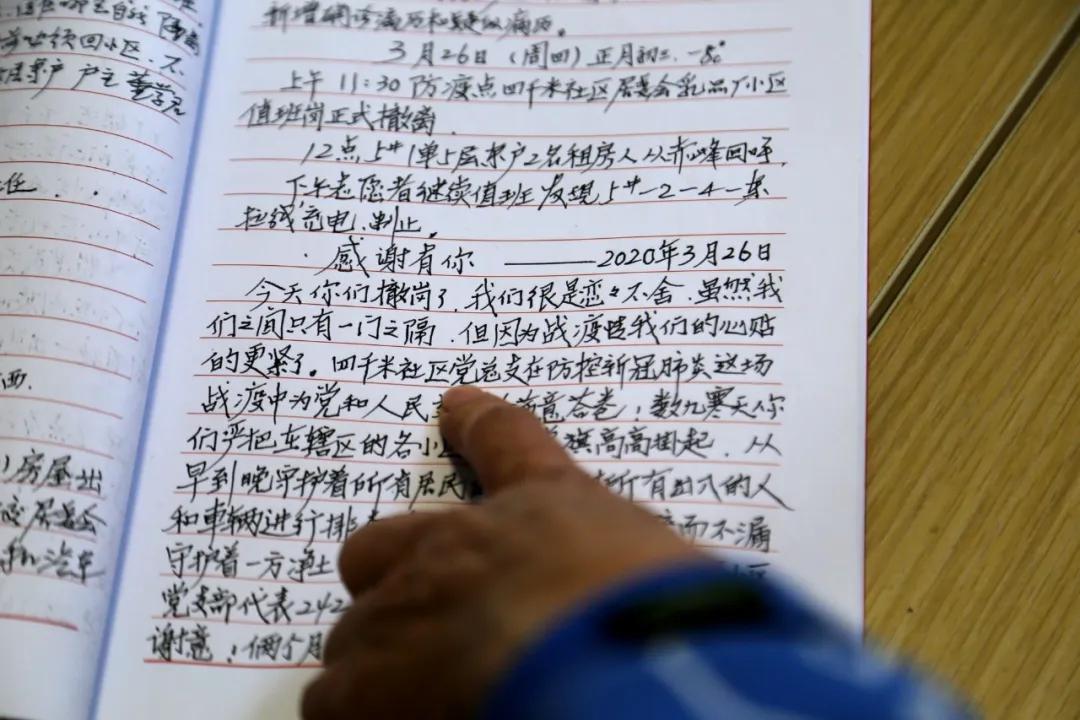 自我隔离
必须回小区.不
层某户 户主
任
西.
房屋出
居委会
汽车
新增确诊病历和疑似病历。
3月26日(周四)正月初三.-8°
上午11:30防疫点四千米社区居委会乳品厂小区
值班岗正式撤离.
12点5#1单5层某户2名租房人从赤峰回呼.
下午志愿者继续值班发现5#-2-4-东
拉线充电.制止。
感谢有你 ——— 2020年3月26日
今天你们撤岗了.我们很是恋々不舍.虽然我
们之间只有一门之隔.但因为战疫使我们的心贴
的更紧了。四千米社区党总支在防控新冠肺炎这场
战疫中为党和人民 满意答卷,数九寒天你
们严把在辖区的各小区 旗高高掛起.从
早到晚守护着所有居民 所有出入的人
和车辆进行排 而不漏
守护着一方净土 小区
党支部代表242
谢意,俩个月